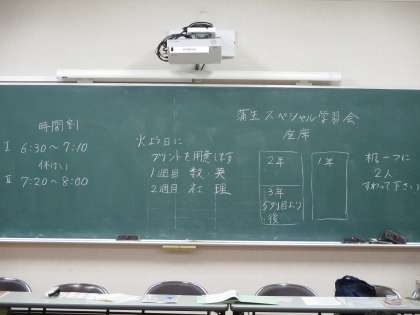 時間割
I 6:30〜7:10
休けい
II 7:20〜8:00
火よう日に
プリントを用意します
1週目 数 英
2週目 社 理
蒲生スペシャル学習会
座席
2年
1年
3年
5列目より
後
机一つに
2人
すわって下さい